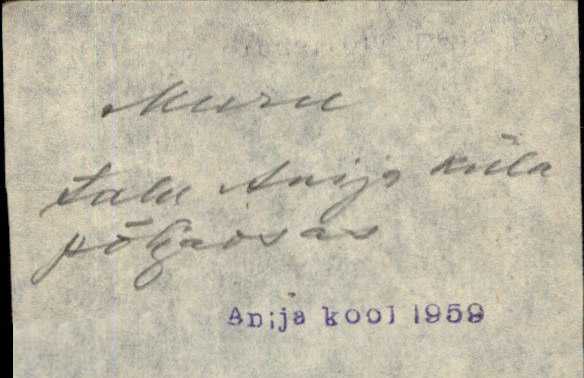 Muru
talu Anija küla
põhjaosas
Anija kool 1959